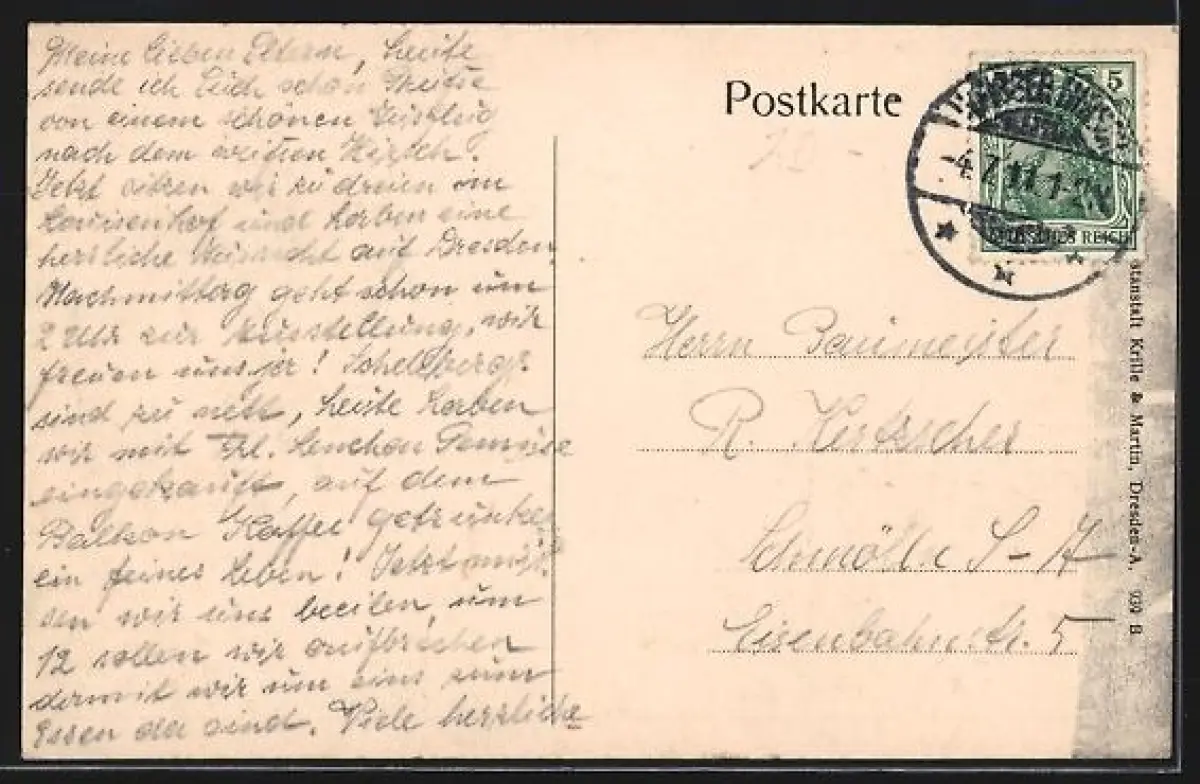 Meine lieben Eltern, heute
sende ich Euch schon Grüsse
von einem schönen Ausflug
nach dem weissen Hirsch.
Jetzt sitzen wir zu dreien im
Louisenhof und haben eine
herrliche Aussicht auf Dresden.
Nachmittag geht schon um
2 Uhr zur Ausstellung, wir
freuen uns sehr!
sind zu nett, heute haben
wir mit Frl. Lenchen Gemüse
eingekauft, auf dem
Balkon Kaffee getrunken
ein feines Leben! Jetzt müs-
sen wir uns beeilen, um
12 wollen wir aufbrechen
damit wir um eins zum
Essen da sind. Viele herzliche
Postkarte
5
-4.7.11.1-2N
DEUTSCHES REICH
Herrn Baumeister
R. Kertzscher
Schmölln S-A
Eisenbahnstr. 5
stanstalt Krille & Martin, Dresden-A. 939 B